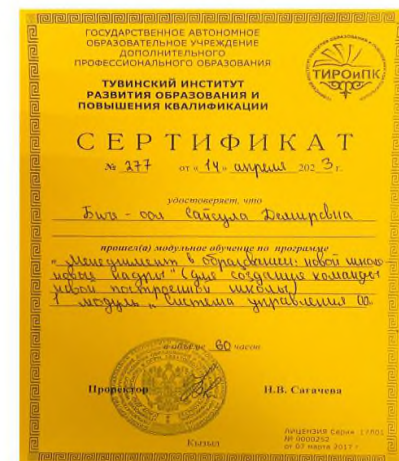 ГОСУДАРСТВЕННОЕ АВТОНОМНОЕ
ОБРАЗОВАТЕЛЬНОЕ УЧРЕЖДЕНИЕ
ДОПОЛНИТЕЛЬНОГО
ПРОФЕССИОНАЛЬНОГО ОБРАЗОВАНИЯ
ТУВИНСКИЙ ИНСТИТУТ
РАЗВИТИЯ ОБРАЗОВАНИЯ И
ПОВЫШЕНИЯ КВАЛИФИКАЦИИ
ТИРОиПК
СЕРТИФИКАТ
№ 277 от «14» апреля 2023 г.
удостоверяет, что
Сайсула Демировна
прошел(а) модульное обучение по программе
"Менеджмент в образовании: новой школе
новые кадры" (для создания команды
новой построенной школы)
1 модуль "Система управления
в объеме 60 часов
Проректор Н.В. Сагачева
Кызыл
ЛИЦЕНЗИЯ Серия 17Л01
№ 0000252
от 07 марта 2017 г.